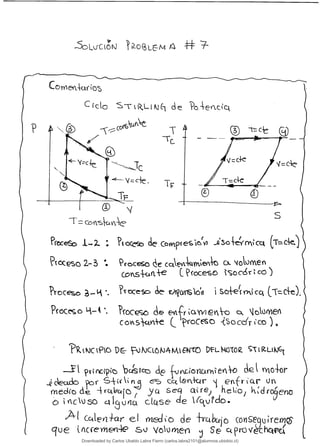 SOLUCIÓN PROBLEMA # 7
Comentarios
Ciclo STIRLING de Potencia
P
3
T=constante
4
V=cte
TC
V=cte.
2
TF
1
V
T=constante
T
TC
3 T=cte 4
V=cte
V=cte
TF
T=cte
2 1
S
Proceso 1-2 : Proceso de compresión isotérmica (T=cte)
Proceso 2-3 : Proceso de calentamiento a volumen
constante (Proceso isocórico)
Proceso 3-4 : Proceso de expansión isotérmica (T=cte).
Proceso 4-1 : Proceso de enfriamiento a volumen
constante (Proceso isocórico).
PRINCIPIO DE FUNCIONAMIENTO DEL MOTOR STIRLING
El principio básico de funcionamiento del motor
ideado por Stirling es calentar y enfriar un
medio de trabajo, ya sea aire, helio, hidrógeno
o incluso alguna clase de líquido.
Al calentar el medio de trabajo conseguiremos
que incremente su volumen y se aprovechará
Downloaded by Carlos Ubaldo Labra Fierro (carlos.labra2101@alumnos.ubiobio.cl)